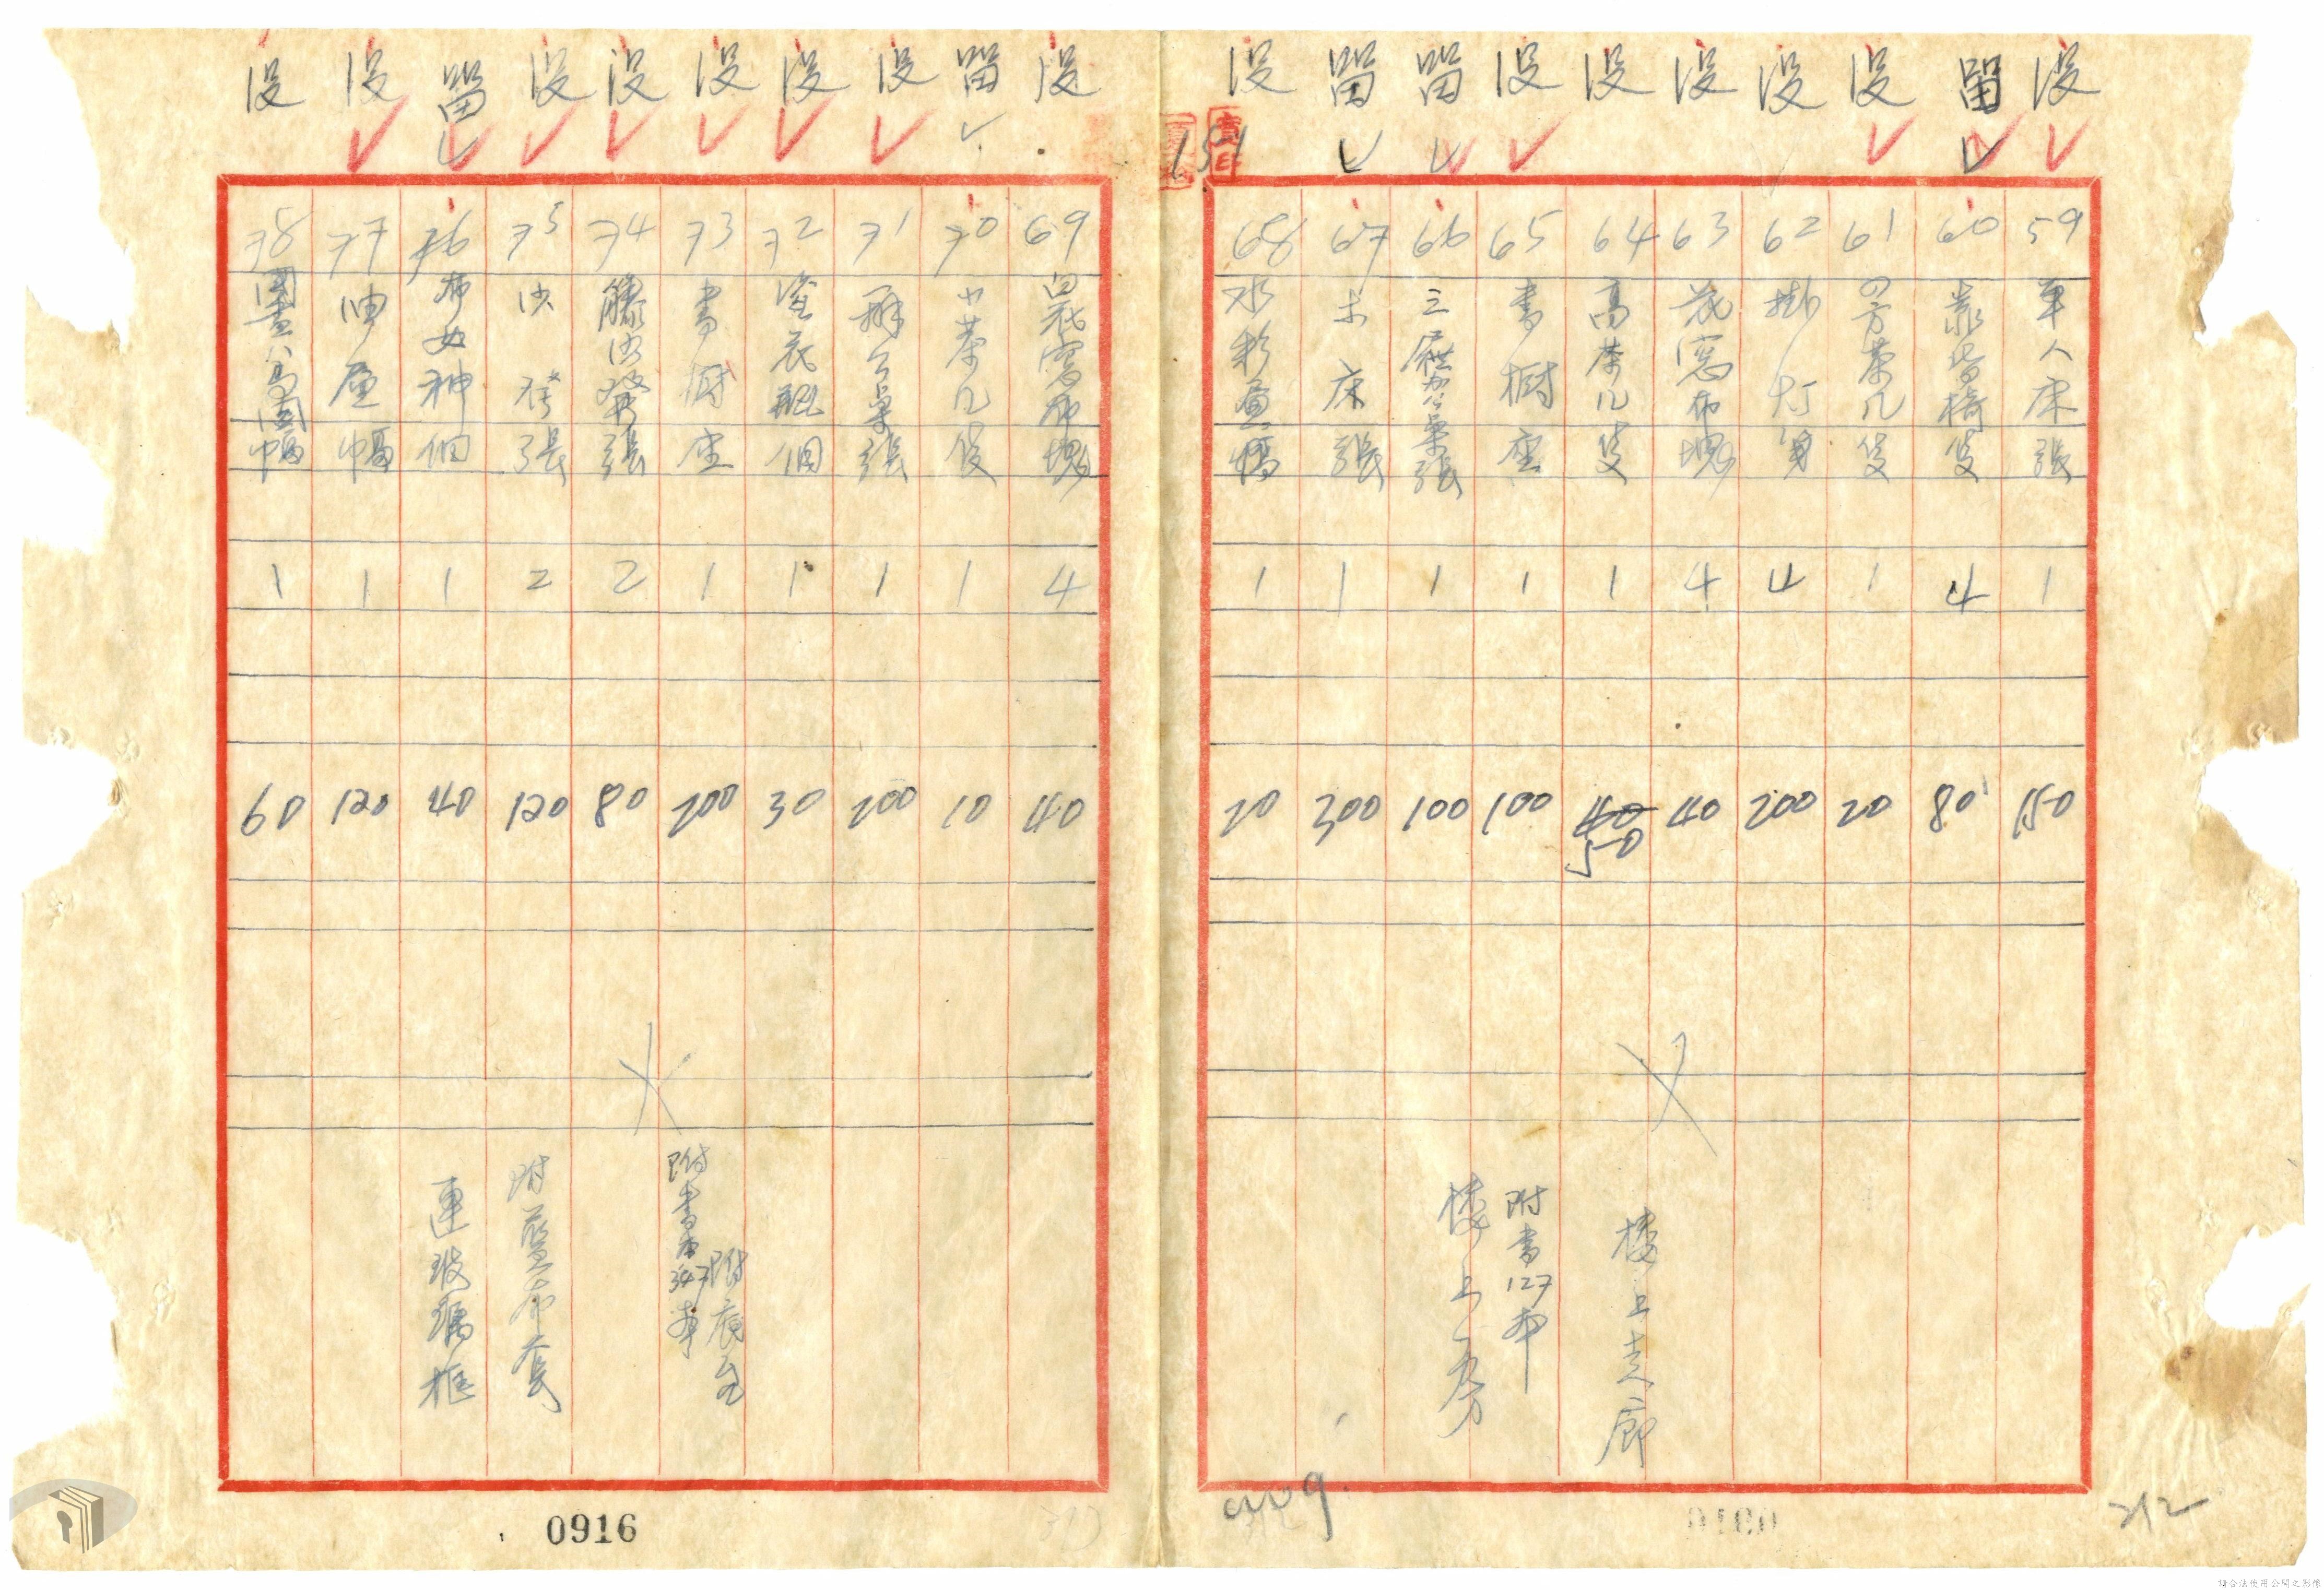 沒 59 單人床 張 1 150
留 60 靠背椅 隻 4 80
沒 61 四方茶几 隻 1 20
沒 62 掛灯 4 200
沒 63 花窓布 塊 4 40
沒 64 高茶几 隻 1 40 50 樓上走廊
沒 65 書櫥 座 1 100 附書127本
留 66 三屜办公桌 張 1 100 樓上房
留 67 木床 張 1 300
沒 68 水彩畫 幅 1 20
沒 69 白花窓布 塊 4 40
留 70 小茶几 隻 1 10
沒 71 辦公桌 張 1 200
沒 72 瓶 個 1 30
沒 73 書櫥 座 1 200 附書本347本
沒 74 籐沙發 張 2 80
沒 75 沙發 張 2 120 附藍布套
留 76 女神 個 1 40 連玻璃框
沒 77 油画 幅 1 120
沒 78 國畫八馬圖 幅 1 60
0916
212
請合法使用公開之影像